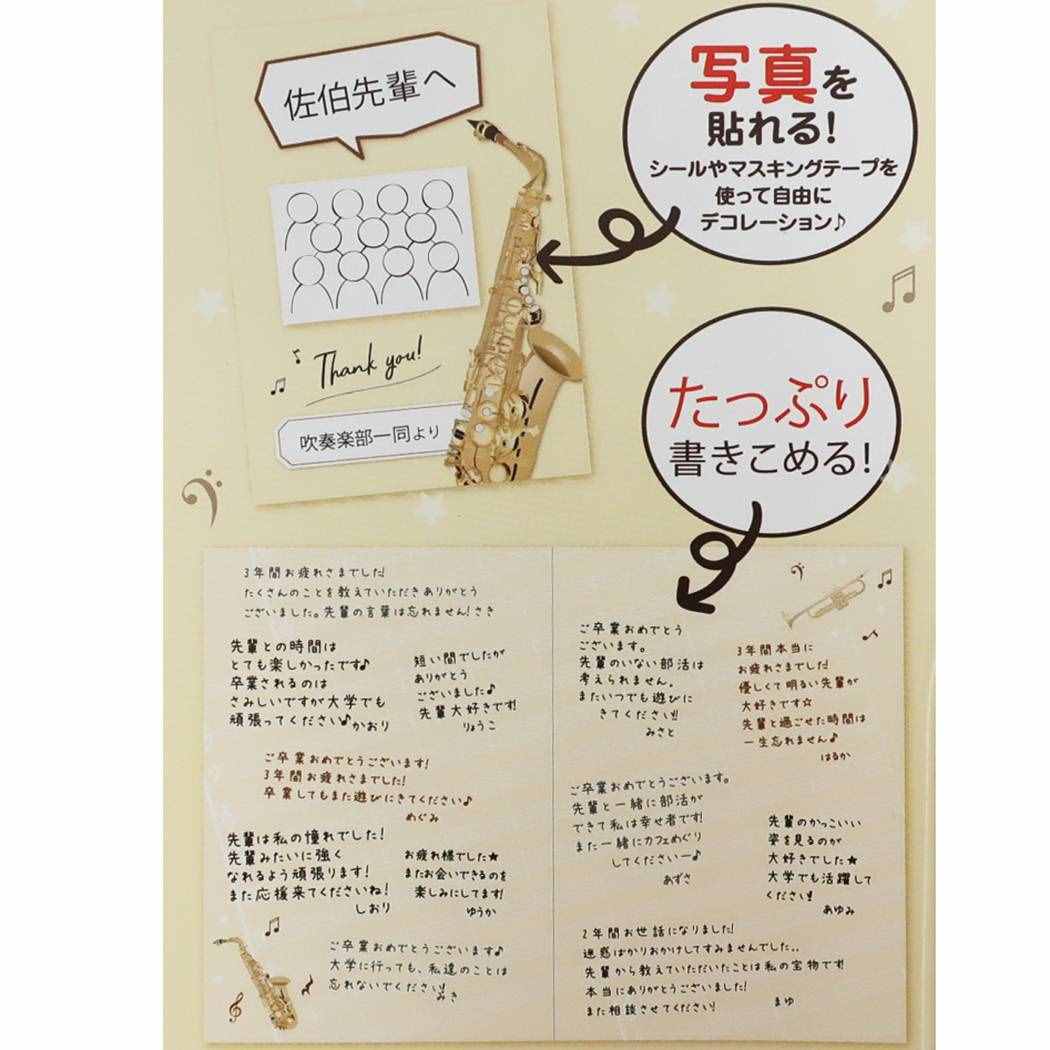 佐伯先輩へ
Thank you!
吹奏楽部一同より
写真を
貼れる!
シールやマスキングテープを
使って自由に
デコレーション♪
たっぷり
書きこめる!
3年間お疲れさまでした!
たくさんのことを教えていただきありがとう
ございました。先輩の言葉は忘れません! さき
先輩との時間は
とても楽しかったです♪
卒業されるのは
さみしいですが大学でも
頑張ってください♪ かおり
短い間でしたが
ありがとう
ございました♪
先輩大好きです!
りょうこ
ご卒業おめでとうございます!
3年間お疲れさまでした!
卒業してもまた遊びにきてください♪
めぐみ
先輩は私の憧れでした!
先輩みたいに強く
なれるよう頑張ります!
また応援来てくださいね!
しおり
お疲れ様でした★
またお会いできるのを
楽しみにしてます!
ゆうか
ご卒業おめでとうございます♪
大学に行っても、私達のことは
忘れないでください!
みき
ご卒業おめでとう
ございます。
先輩のいない部活は
考えられません。
またいつでも遊びに
きてください!!
みさと
3年間本当に
お疲れさまでした!
優しくて明るい先輩が
大好きです☆
先輩と過ごせた時間は
一生忘れません♪
はるか
ご卒業おめでとうございます。
先輩と一緒に部活が
できて私は幸せ者です!
また一緒にカフェめぐり
してくださいー♪
あずさ
先輩のかっこいい
姿を見るのが
大好きでした★
大学でも活躍して
ください!!
あゆみ
2年間お世話になりました!
迷惑ばかりおかけしてすみませんでした..
先輩から教えていただいたことは私の宝物です!
本当にありがとうございました!
また相談させてください! まゆ